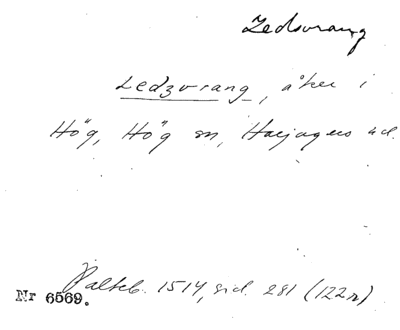 Ledsvrang
Ledzvrang, åker i
Hög, Hög sn, Harjagers hd.
Palteb. 1514, sid. 281 (122 r)
Nr 6569.